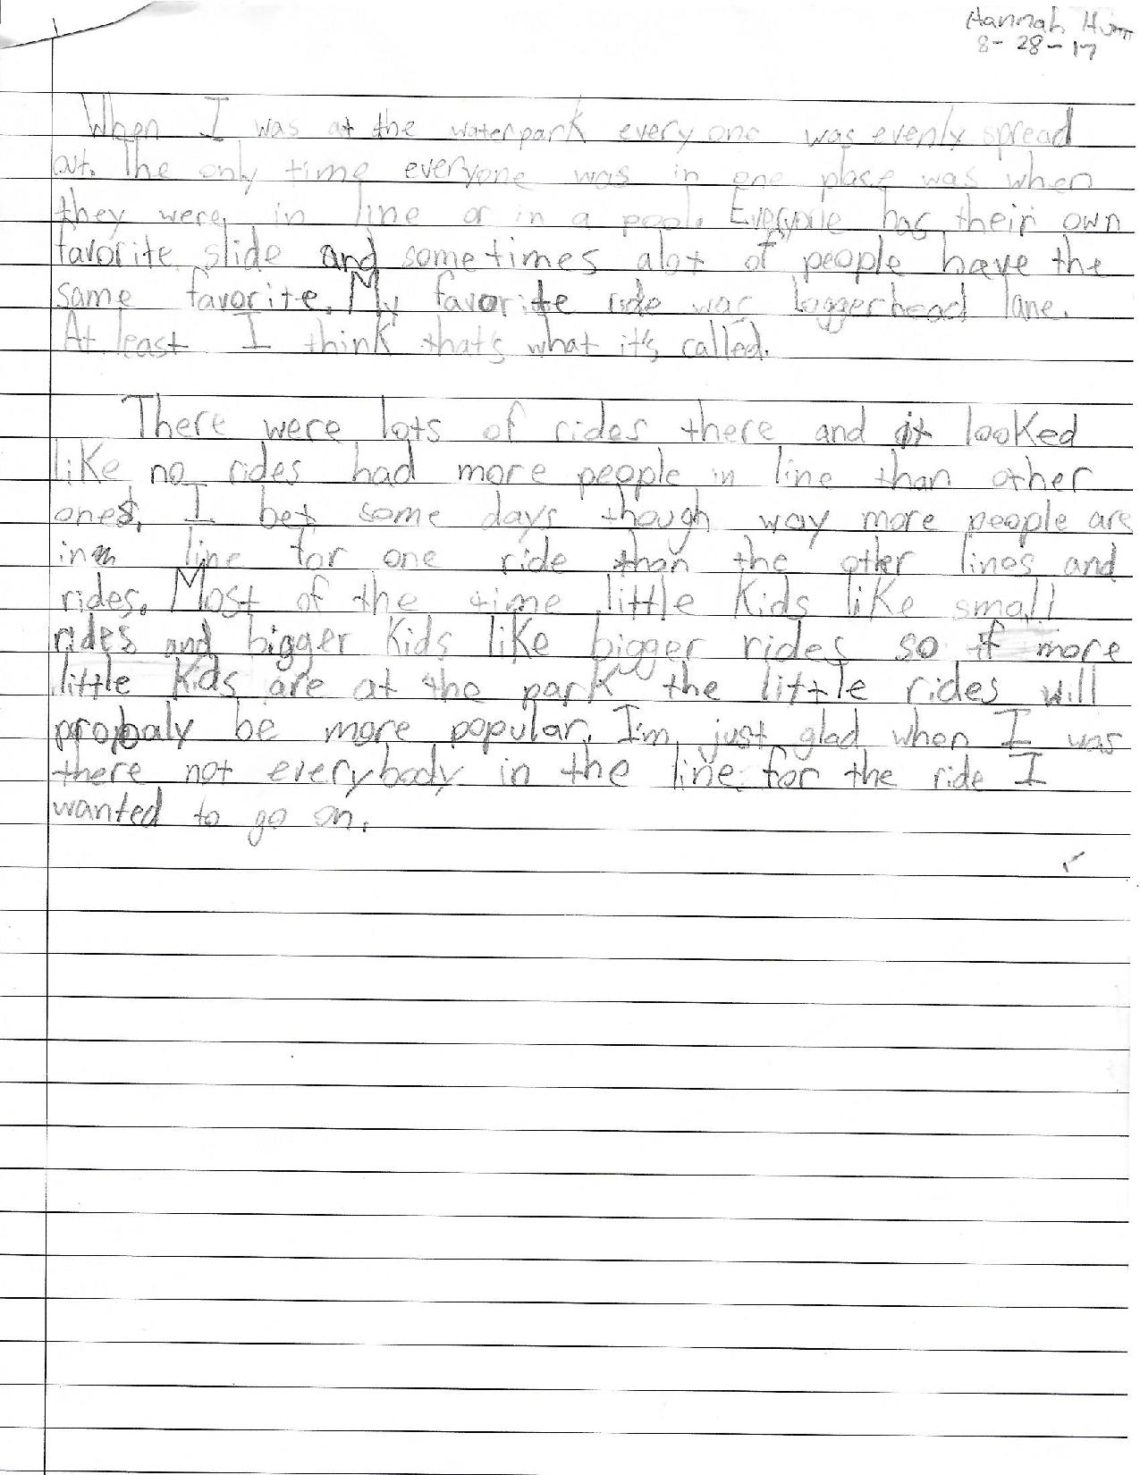 Hannah
8-28-17
When I was at the waterpark every one was evenly spread
out. The only time everyone was in one place was when
they were in line or in a pool. Everyone has their own
favorite slide and sometimes alot of people have the
same favorite. My favorite ride was loggerhead lane.
At least I think that's what it's called.
There were lots of rides there and it looked
like no rides had more people in line than other
ones. I bet some days though way more people are
in line for one ride than the other lines and
rides. Most of the time little kids like small
rides and bigger kids like bigger rides so if more
little kids are at the park the little rides will
probaly be more popular. I'm just glad when I was
there not everybody in the line for the ride I
wanted to go on.